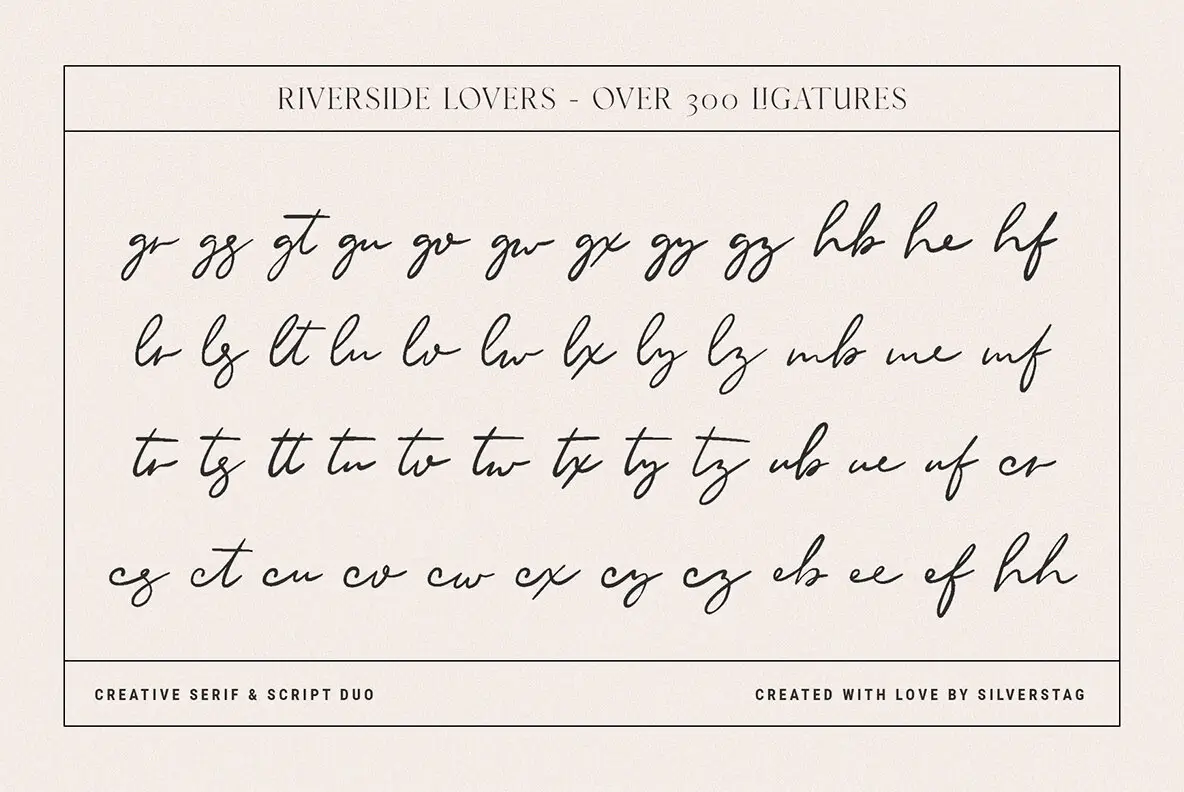 RIVERSIDE LOVERS - OVER 300 LIGATURES
gr gs gt gu gv gw gx gy gz hb he hf
lr ls lt lu lv lw lx ly lz mb me mf
tr ts tt tu tv tw tx ty tz ub ue uf cr
cs ct cu cv cw cx cy cz eb ee ef hh
CREATIVE SERIF & SCRIPT DUO
CREATED WITH LOVE BY SILVERSTAG